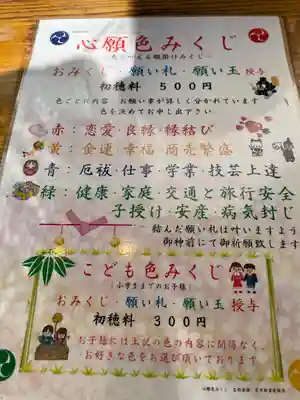 心願色みくじ
おみくじ・願い札・願い玉 授与
初穂料 500円
色ごとに内容 お願い事が詳しく分かれています
色を決めてお申し出下さい
赤：恋愛・良縁・縁結び
黄：金運・幸福・商売繁盛
青：厄祓・仕事・学業・技芸上達
緑：健康・家庭・交通と旅行安全
子授け・安産・病気封じ
結んだ願い札は叶いますよう
御神前にて御祈願致します
こども色みくじ
(小学生までのお子様)
おみくじ・願い札・願い玉 授与
初穂料 300円
お子様には上記の色の内容に関係なく、
お好きな色をお選び頂いております